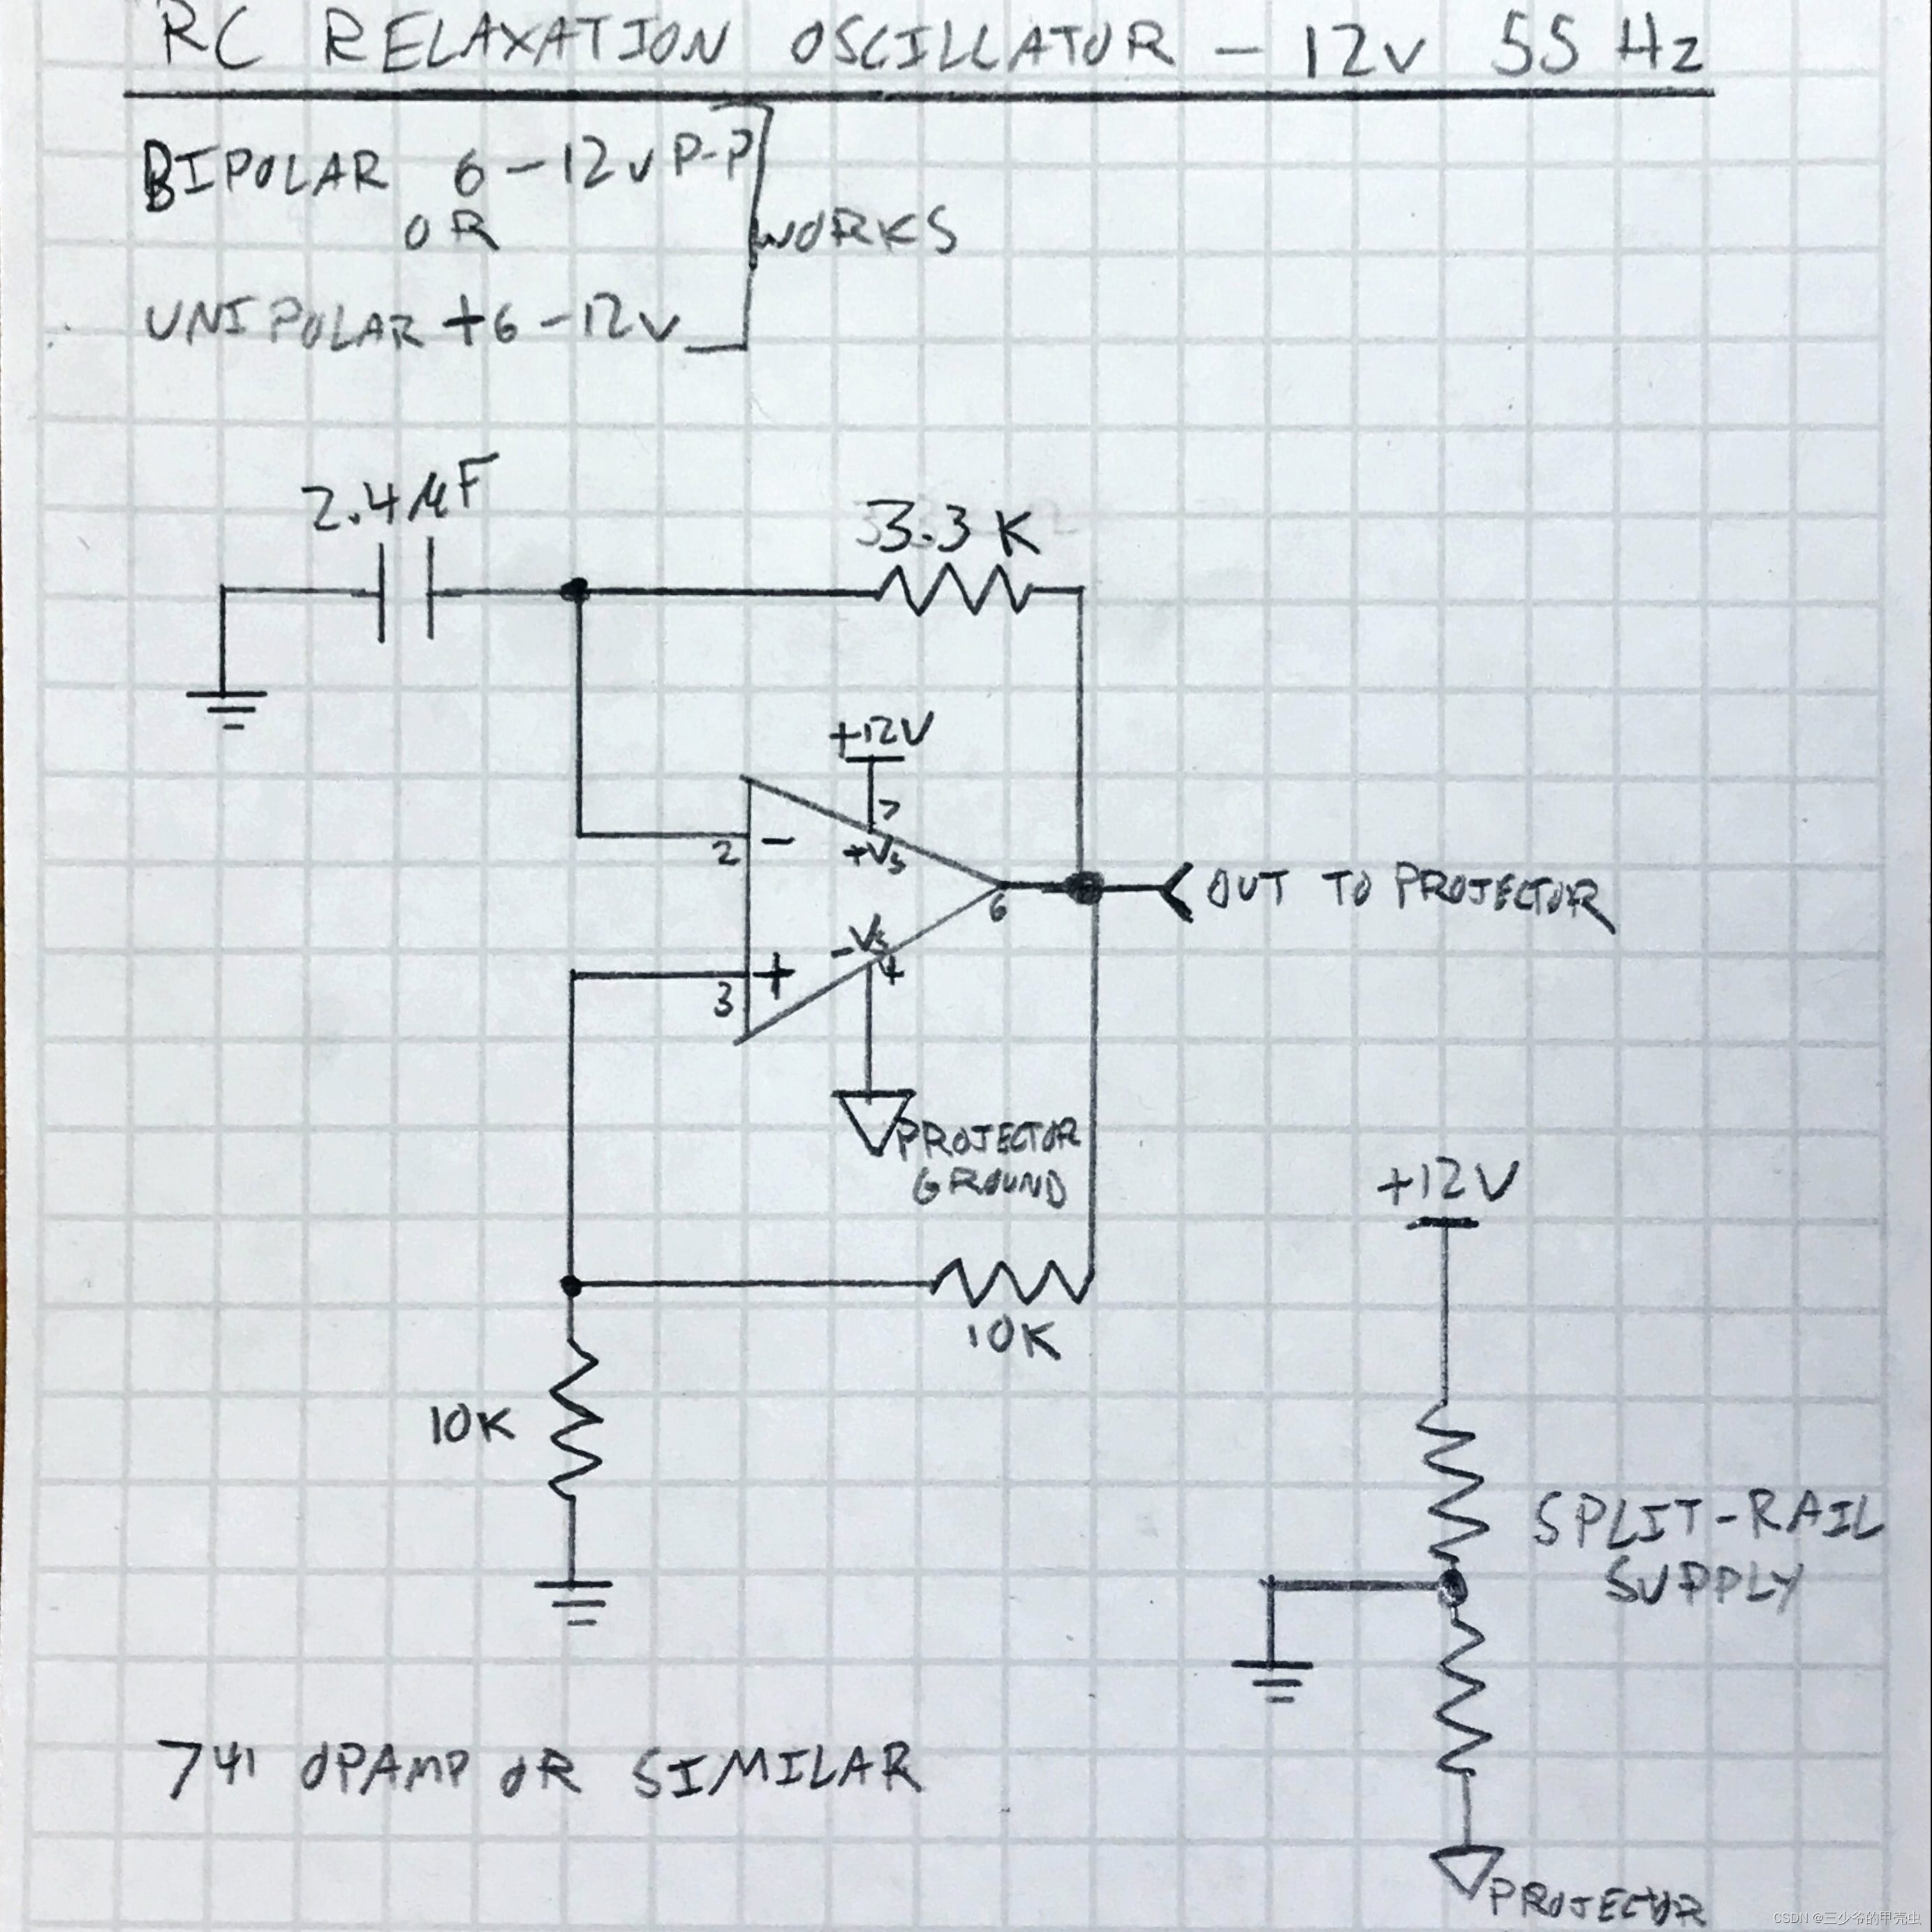 RC RELAXATION OSCILLATOR - 12V 55 Hz
BIPOLAR 6-12V P-P
OR
WORKS
UNIPOLAR +6-12V
2.4 µF
3.3 K
+12V
7
+Vs
2
-
6
OUT TO PROJECTOR
-Vs
4
3
+
PROJECTOR
GROUND
+12V
10K
10K
SPLIT-RAIL
SUPPLY
741 OPAMP OR SIMILAR
PROJECTOR
CSDN @三少爷的甲壳虫